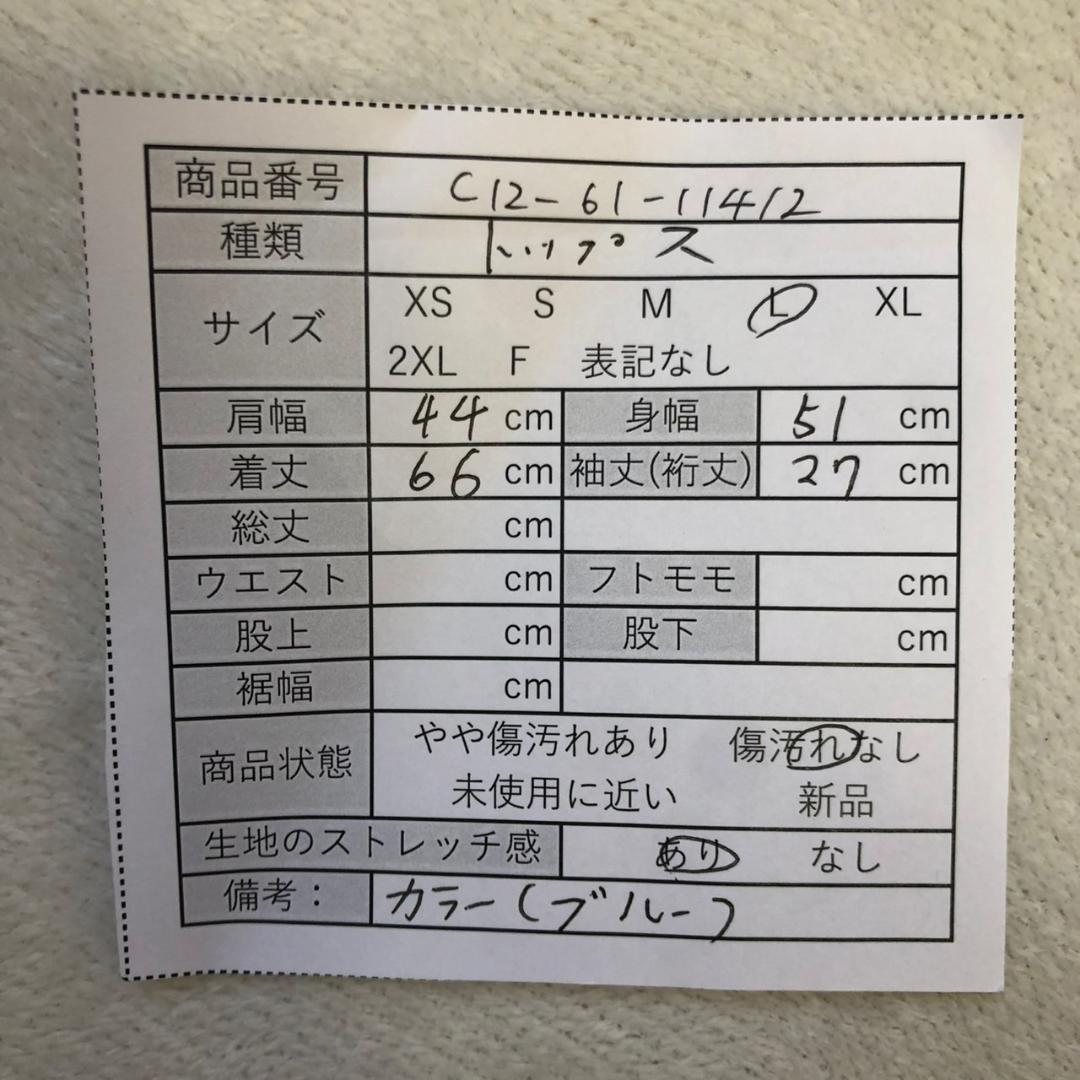 商品番号 C12-61-11412
種類 トップス
サイズ XS S M L XL
2XL F 表記なし
肩幅 44 cm 身幅 51 cm
着丈 66 cm 袖丈(裄丈) 27 cm
総丈 cm
ウエスト cm フトモモ cm
股上 cm 股下 cm
裾幅 cm
商品状態 やや傷汚れあり 傷汚れなし
未使用に近い 新品
生地のストレッチ感 あり なし
備考： カラー(ブルー)